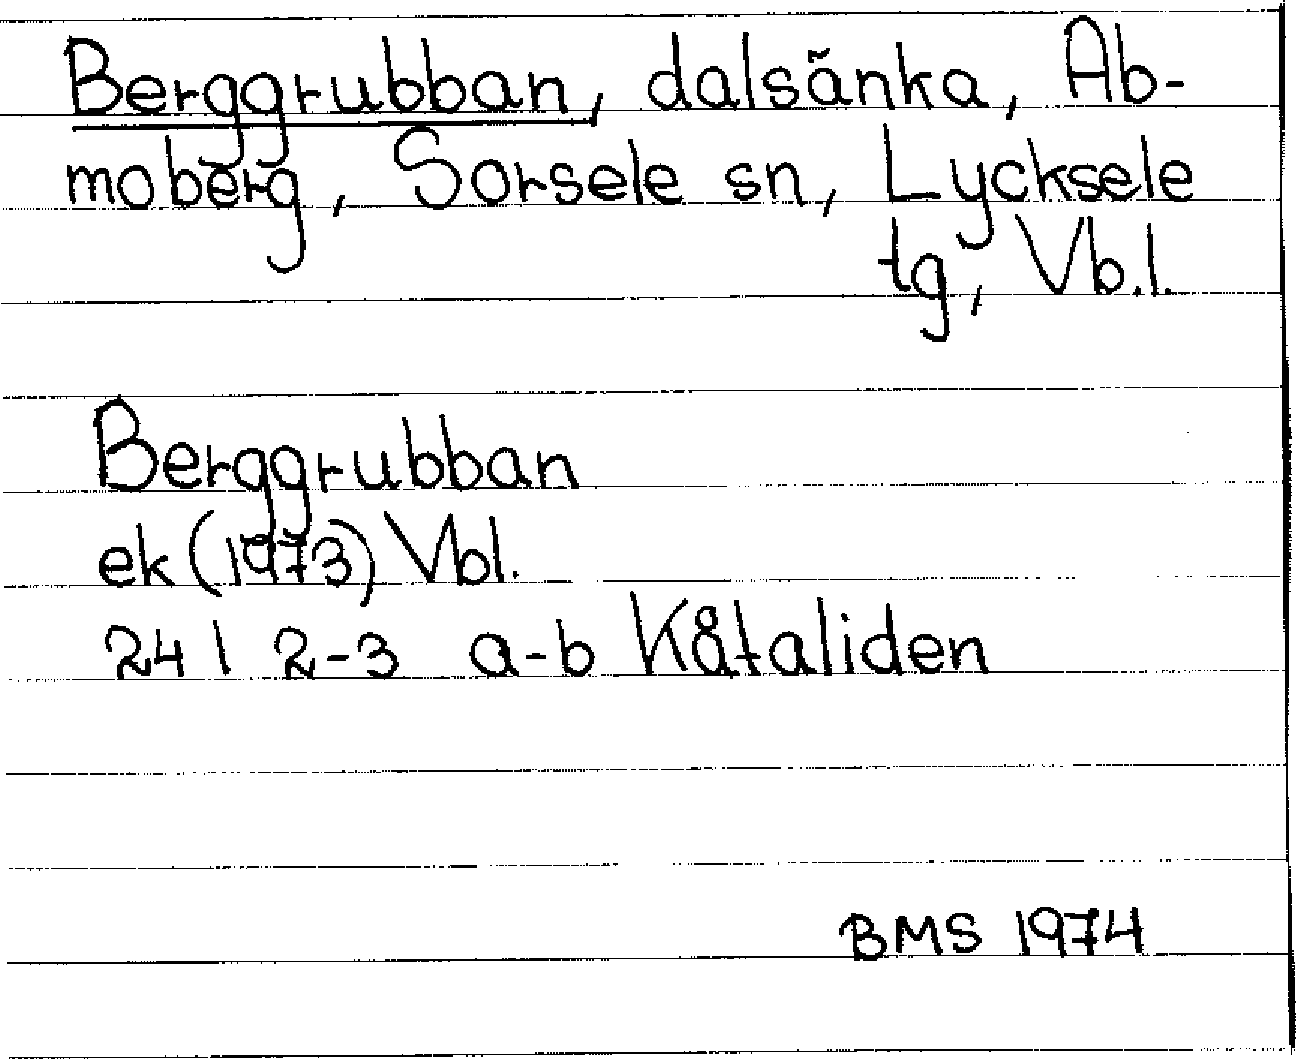 Berggrubban, dalsänka, Ab-
moberg, Sorsele sn, Lycksele
tg, Vb.l.
Berggrubban
ek (1973) Vbl.
24 I 2-3 a-b Kåtaliden
BMS 1974